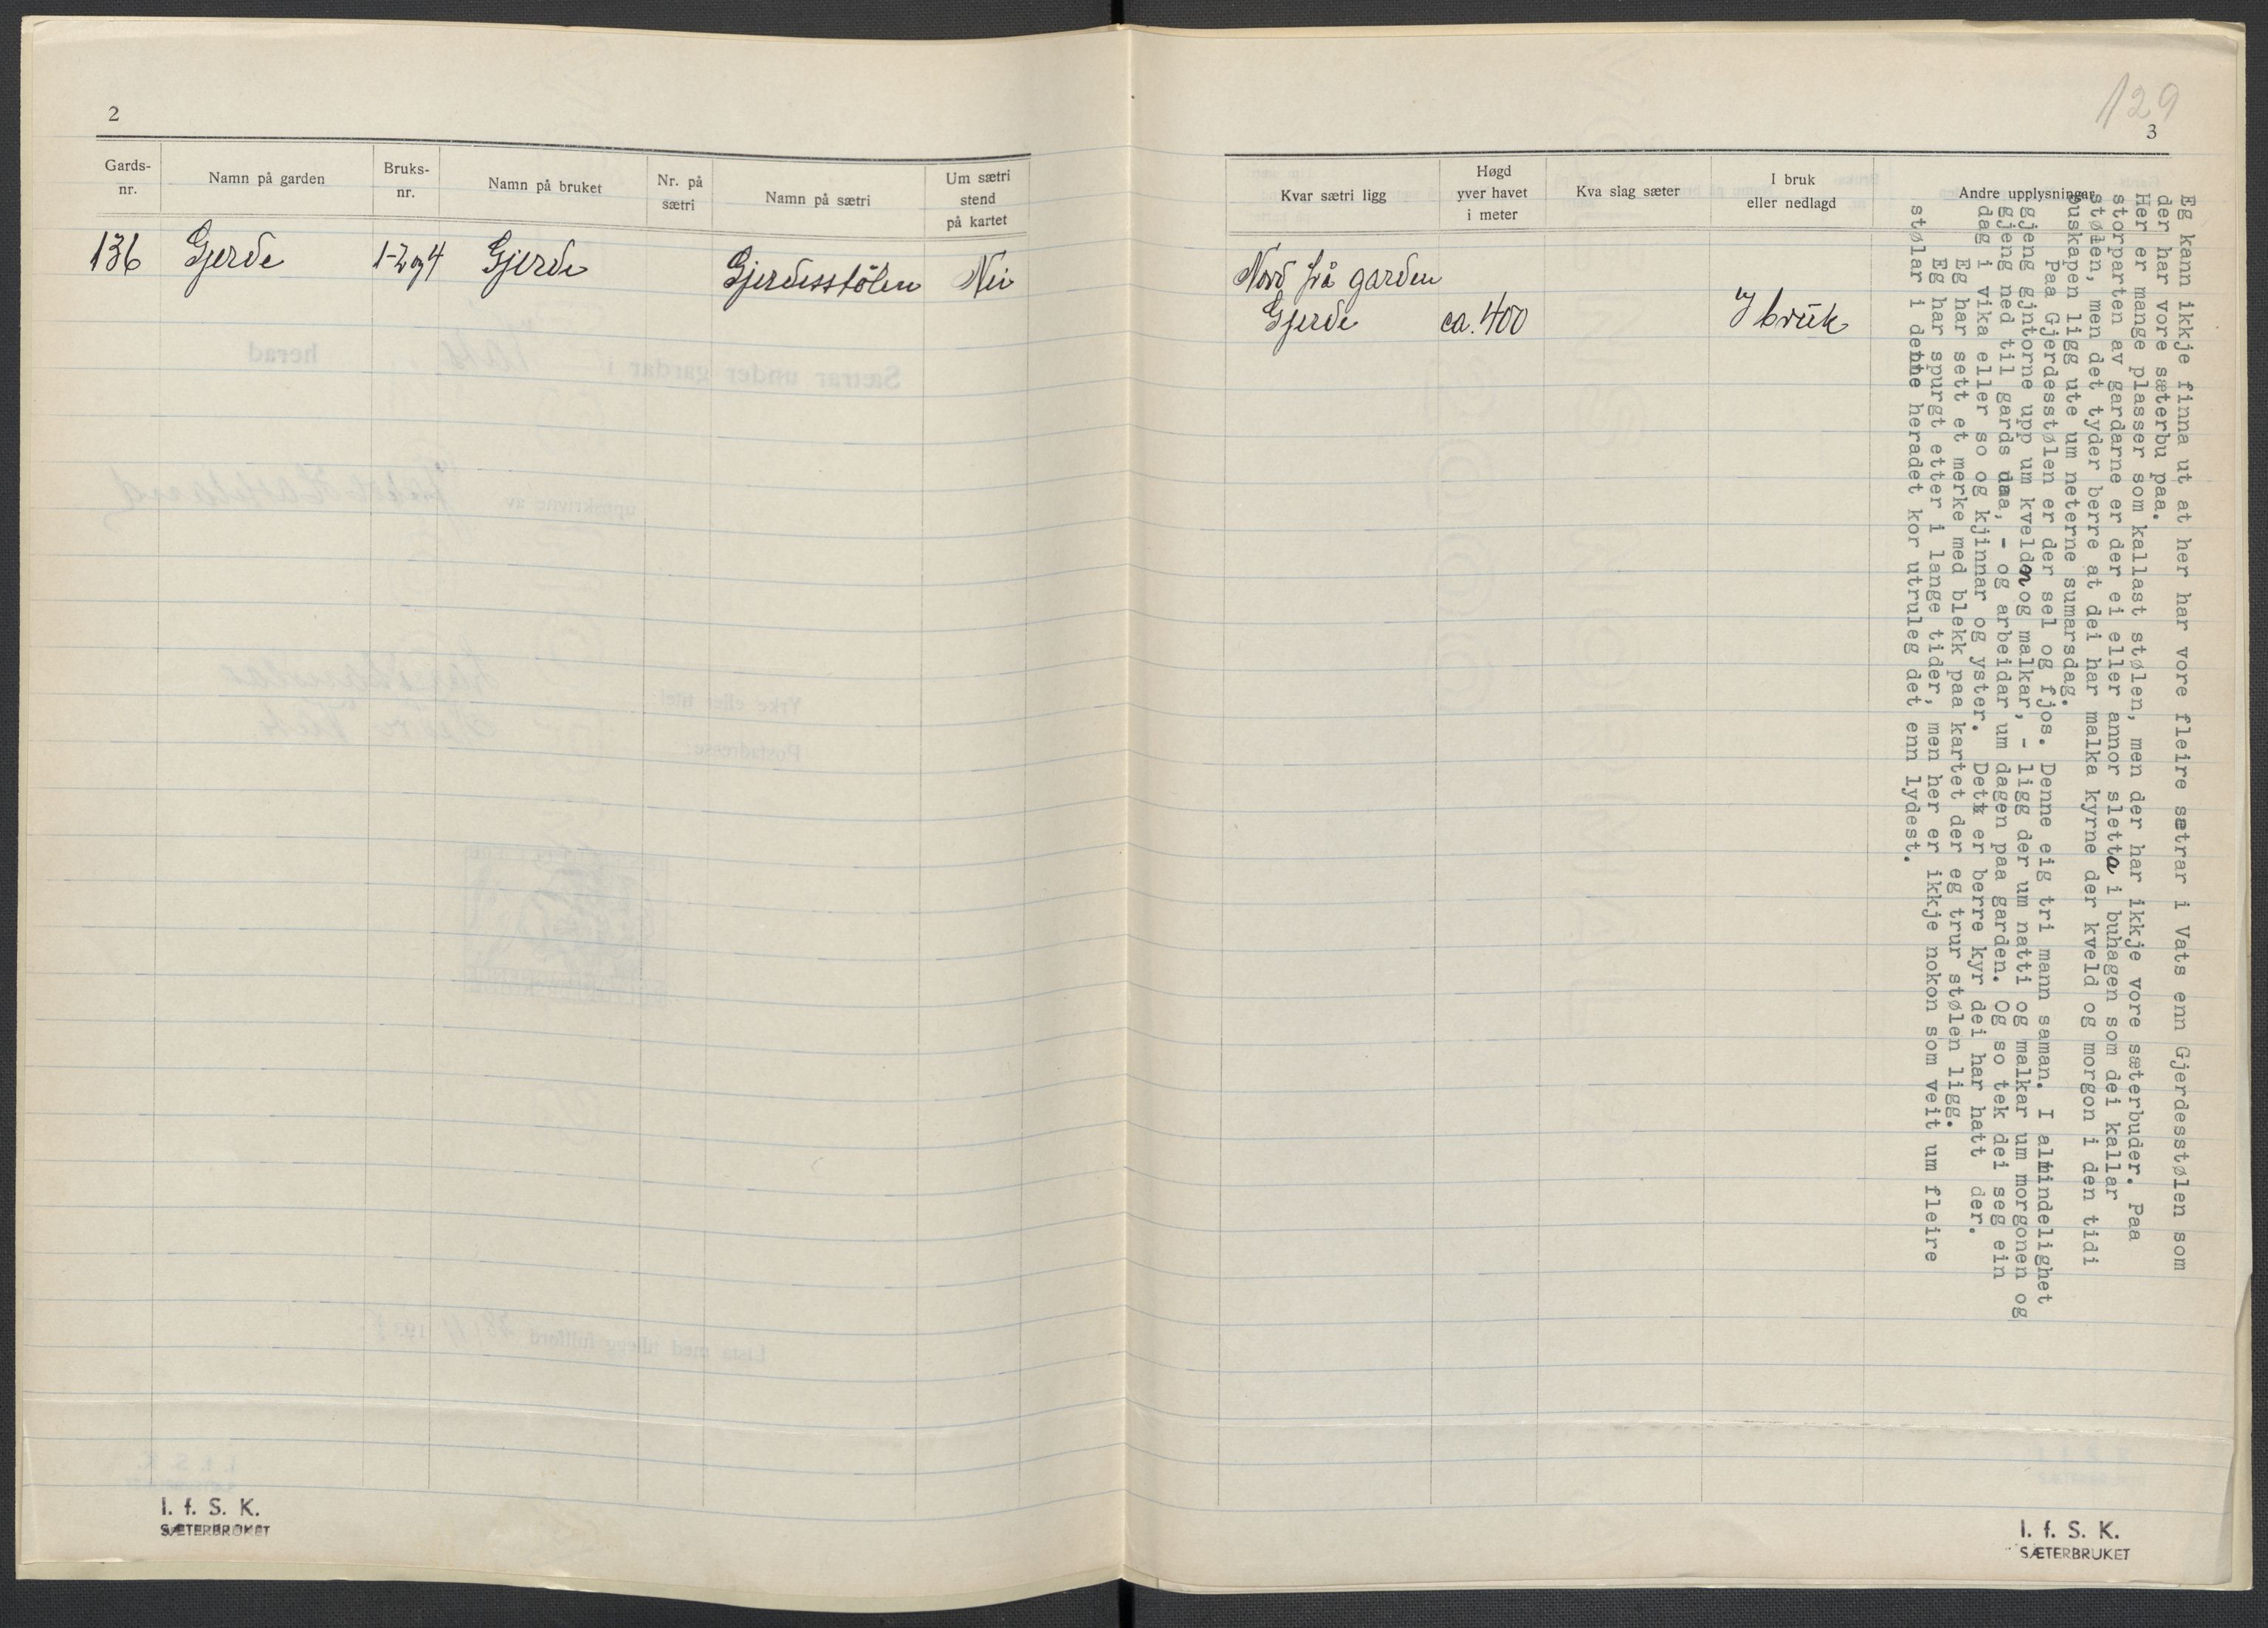 2
Gards-
nr.
Namn på garden
Bruks-
nr.
Namn på bruket
Nr. på
sætri
Namn på sætri
Um sætri
stend
på kartet
136 Gjerde 1-2 og 4 Gjerde Gjerdesstölen Nei
I. f. S. K.
SÆTERBRUKET
129
3
Kvar sætri ligg
Høgd
yver havet
i meter
Kva slag sæter
I bruk
eller nedlagd
Andre upplysningar
Nord frå garden
Gjerde ca. 400 I bruk
Eg kann ikkje finna ut at her har vore fleire sætrar i Vats enn Gjerdesstølen som
der har vore sæterbu paa.
Her er mange plasser som kallast stølen, men der har ikkje vore sæterbuder. Paa
storparten av gardarne er der ei eller annor sletta i buhagen som dei kallar
stølen, men det tyder berre at dei har malka kyrne der kveld og morgon i den tidi
buskapen ligg ute um neterne sumarsdag.
Paa Gjerdesstølen er der sel og fjos. Denne eig tri mann saman. I almindelighet
gjeng gjntorne upp um kvelden og malkar, - ligg der um natti og malkar um morgonen og
gjeng ned til gards daa, - og arbeidar um dagen paa garden. Og so tek dei seg ein
dag i vika eller so og kjinnar og yster. Dett er berre kyr dei har hatt der.
Eg har sett et merke med blekk paa kartet der eg trur stølen ligg.
Eg har spurgt etter i lange tider, men her er ikkje nokon som veit um fleire
stølar i denne heradet kor utruleg det enn lydest.
I. f. S. K.
SÆTERBRUKET